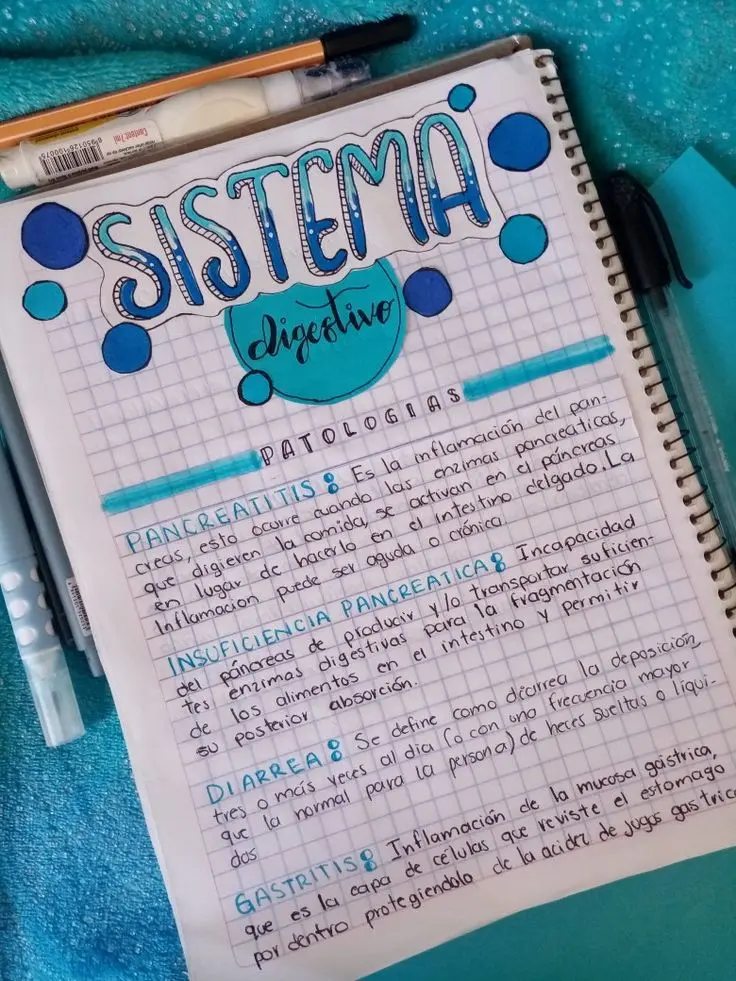 Content 7ml
SISTEMA
digestivo
PATOLOGIAS
PANCREATITIS: Es la inflamación del pan-
creas, esto ocurre cuando las enzimas pancreáticas,
que digieren la comida, se activan en el páncreas
en lugar de hacerlo en el intestino delgado. La
Inflamacion puede ser aguda o crónica.
INSUFICIENCIA PANCREATICA: Incapacidad
del páncreas de producir y/o transportar suficien-
tes enzimas digestivas para la fragmentación
de los alimentos en el intestino y permitir
su posterior absorción.
DIARREA: Se define como diarrea la deposición,
tres o más veces al dia (o con una frecuencia mayor
que la normal para la persona) de heces sueltas o liqui-
dos
GASTRITIS: Inflamación de la mucosa gástrica,
que es la capa de células que reviste el estomago
por dentro protegiendolo de la acidez de jugos gastric